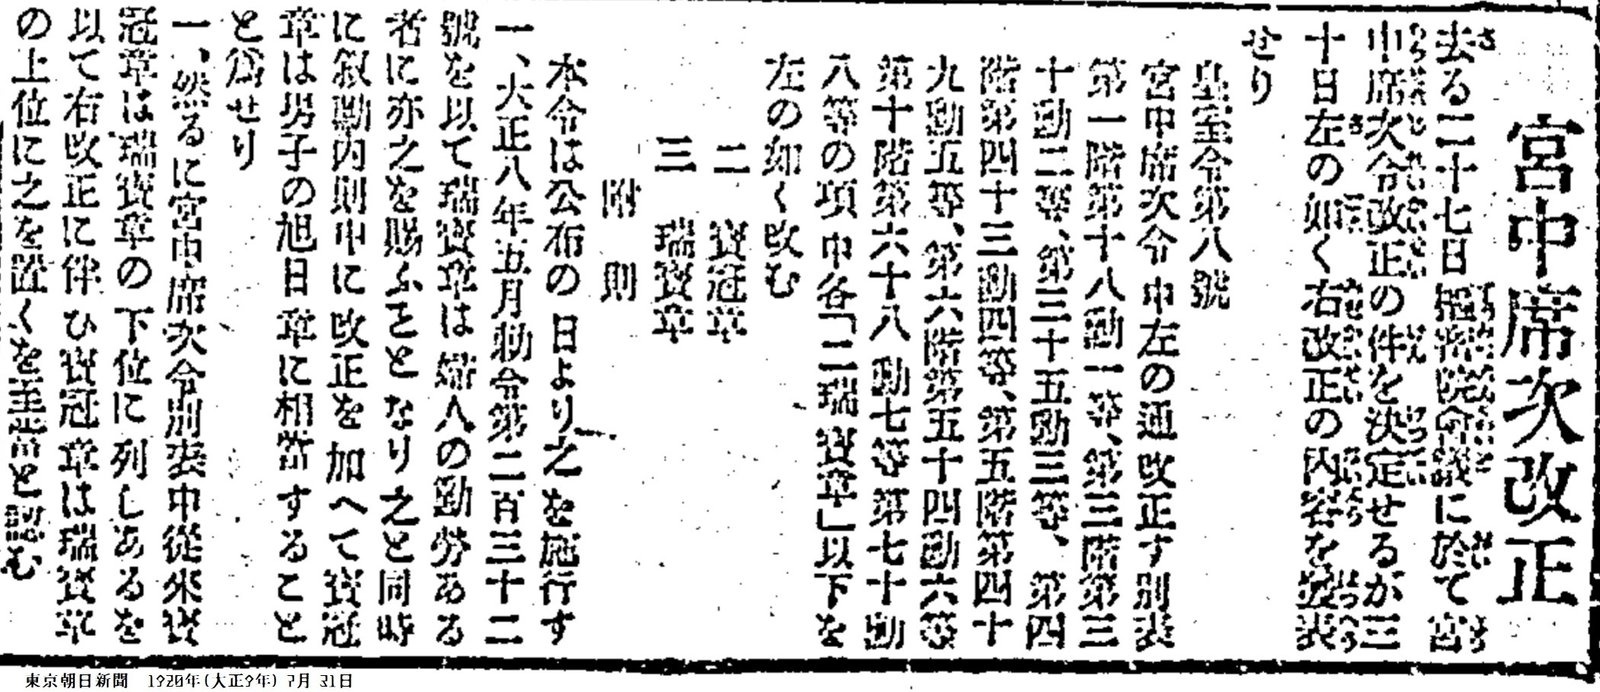 宮中席次改正
去る二十七日樞密院會議に於て宮
中席次令改正の件を決定せるが三
十日左の如く右改正の内容を發表
せり
皇室令第八號
宮中席次令中左の通改正す別表
第一階第十八勳一等、第三階第三
十勳二等、第三十五勳三等、第四
階第四十三勳四等、第五階第四十
九勳五等、第六階第五十四勳六等
第十階第六十八勳七等第七十勳
八等の項中各「二瑞寶章」以下を
左の如く改む
二　寶冠章
三　瑞寶章
附則
本令は公布の日より之を施行す
一、大正八年五月勅令第二百三十二
號を以て瑞寶章は婦人の勳勞ある
者に亦之を賜ふことゝなり之と同時
に敍勳内則中に改正を加へて寶冠
章は男子の旭日章に相當すること
と爲せり
一、然るに宮中席次令別表中從來寶
冠章は瑞寶章の下位に列しあるを
以て右改正に伴ひ寶冠章は瑞寶章
の上位に之を置くを至當と認む
東京朝日新聞　1920年(大正9年) 7月 31日